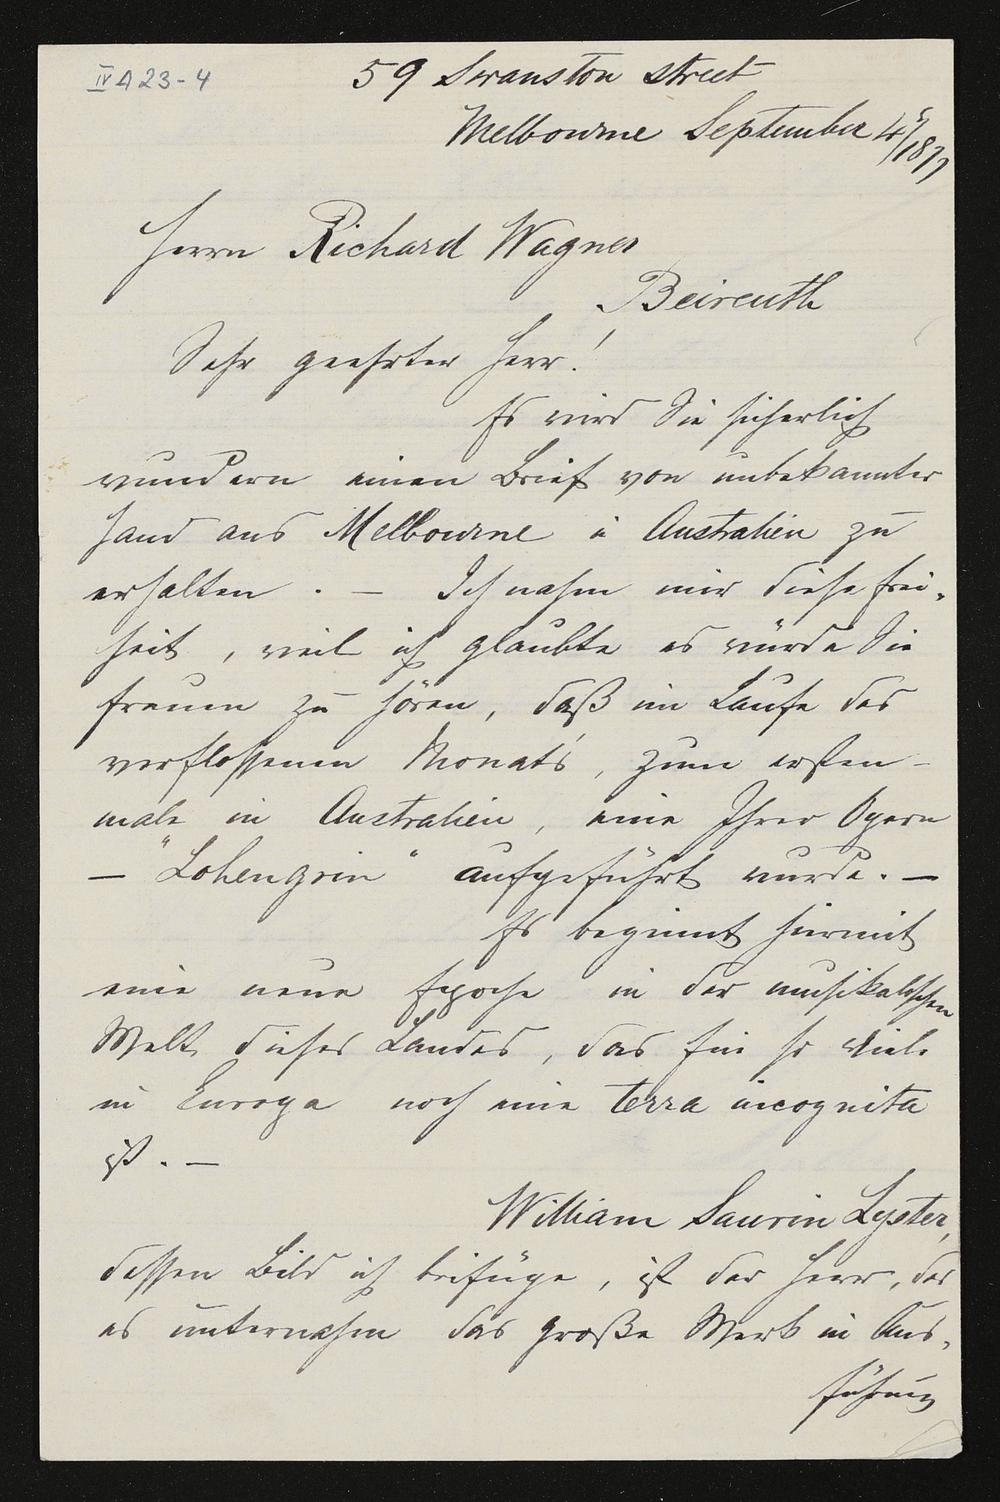 IV A 23-4
59 Swanston street
Melbourne September 4/1877
Herrn Richard Wagner
Beireuth
Sehr geehrter Herr!
Es wird Sie sicherlich
wundern einen Brief von unbekannter
Hand aus Melbourne i Australien zu
erhalten. — Ich nahm mir diese Frei-
heit, weil ich glaubte es würde Sie
freuen zu hören, daß im Laufe des
verflossenen Monats, zum ersten-
male in Australien, eine Ihrer Opern
— "Lohengrin" aufgeführt wurde. —
Es beginnt hiermit
eine neue Epoche in der musikalischen
Welt dieses Landes, das für so viele
in Europa noch eine terra incognita
ist. —
William Saurin Lyster,
dessen Bild ich beifüge, ist der Herr, der
es unternahm das große Werk in Aus-
führung